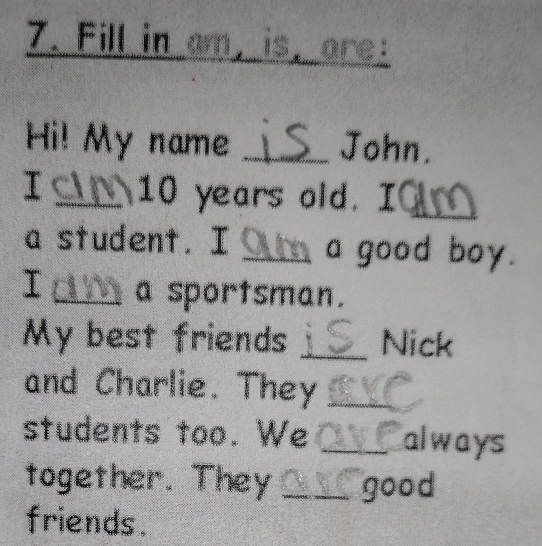 7. Fill in am, is, are:
Hi! My name is John.
I am 10 years old. I am
a student. I am a good boy.
I am a sportsman.
My best friends is Nick
and Charlie. They are
students too. We are always
together. They are good
friends.